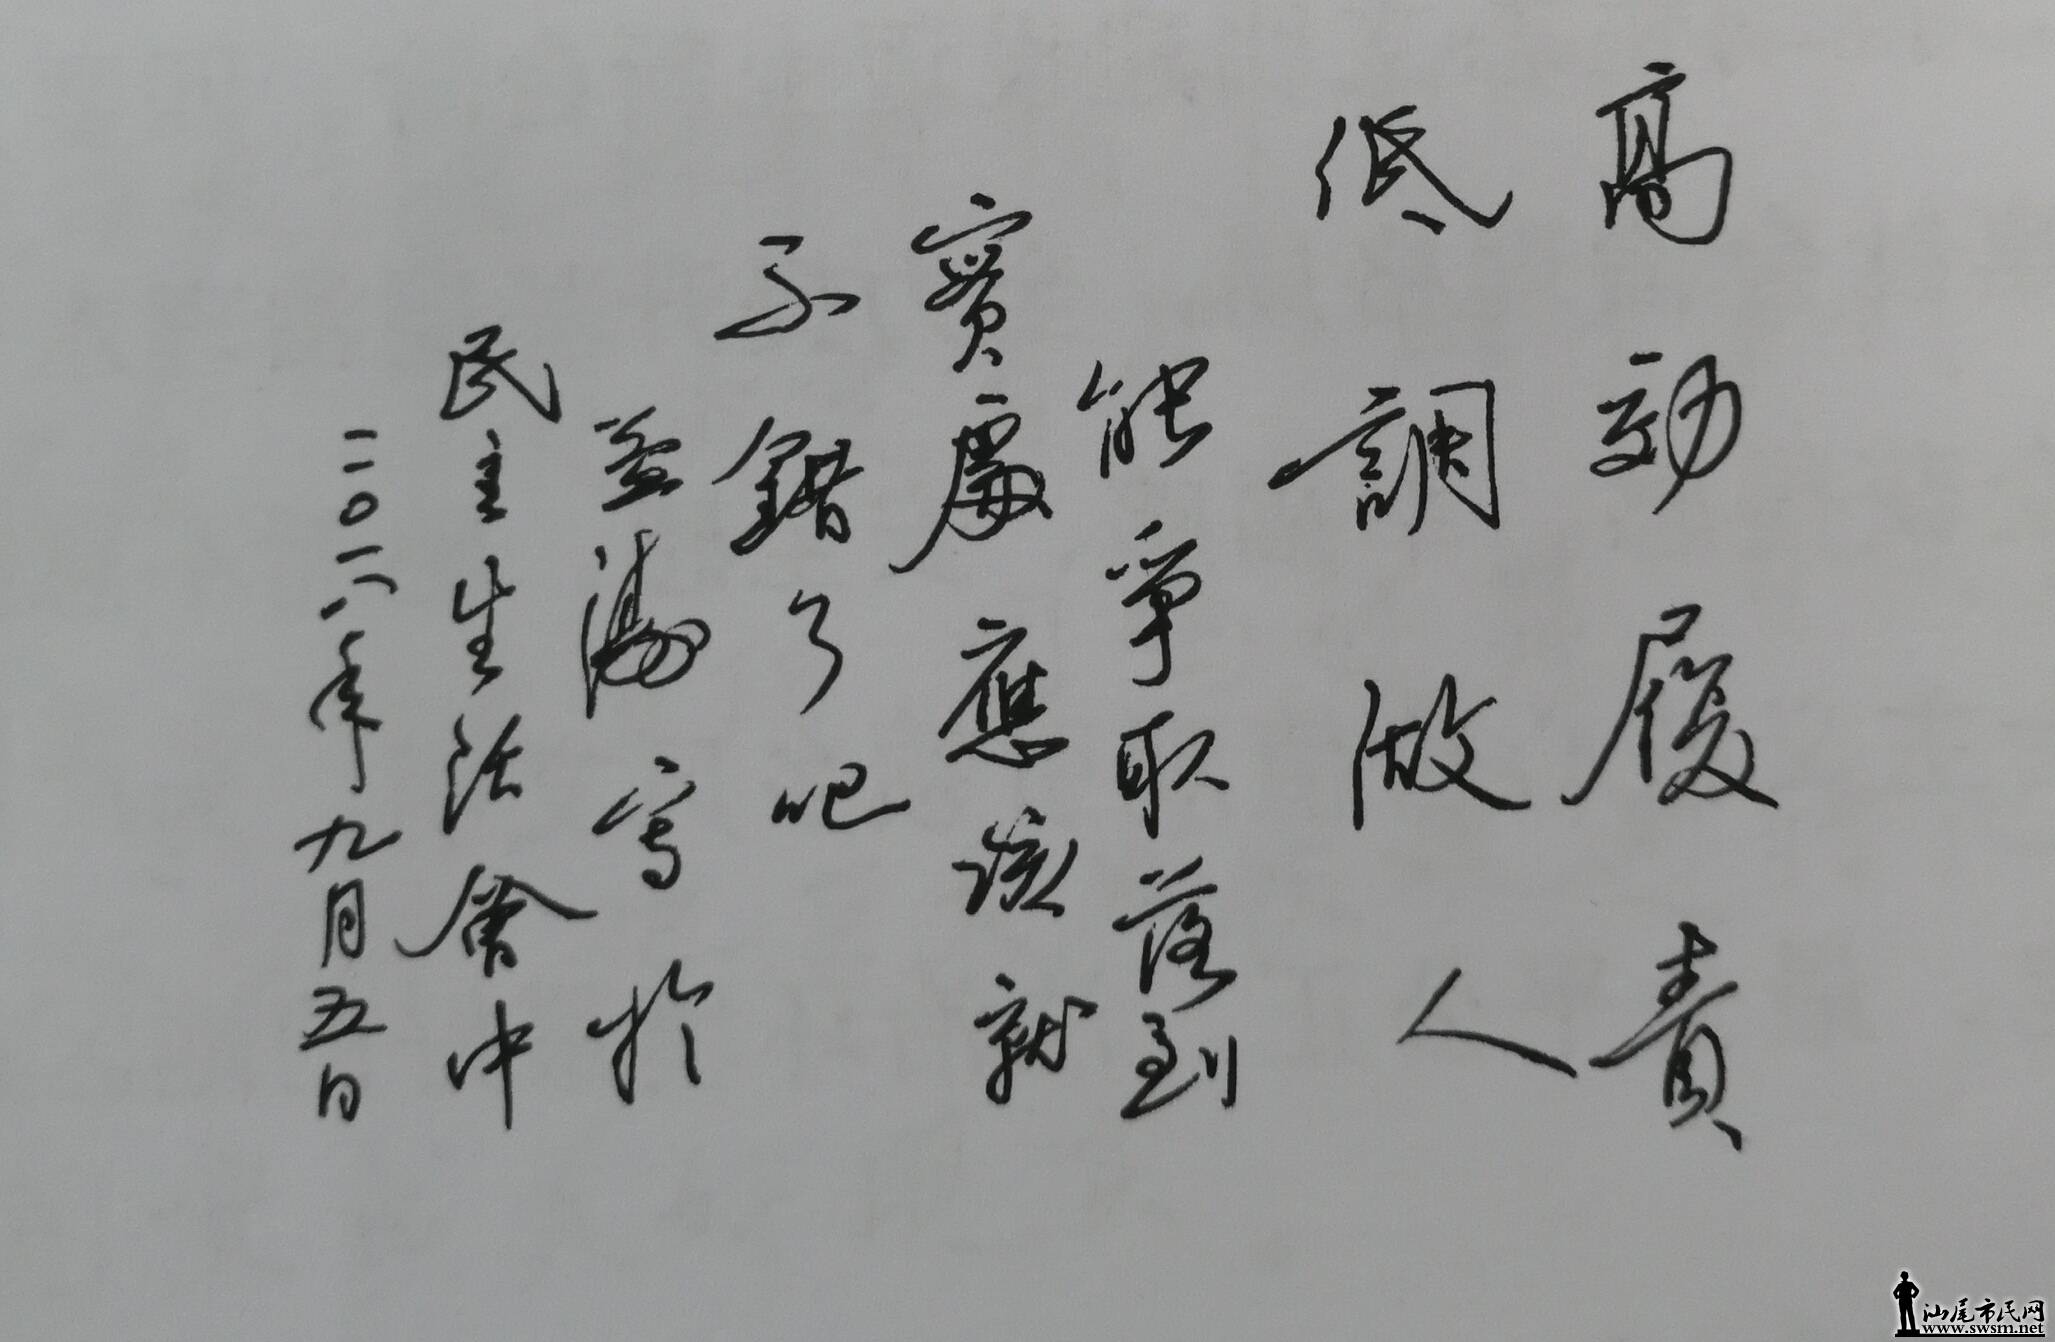 高効履責
低調做人
能爭取落到
實處應該就
不錯了吧
益湯寫於
民主生活會中
二〇一八年九月五日
汕尾市民网
www.swsm.net